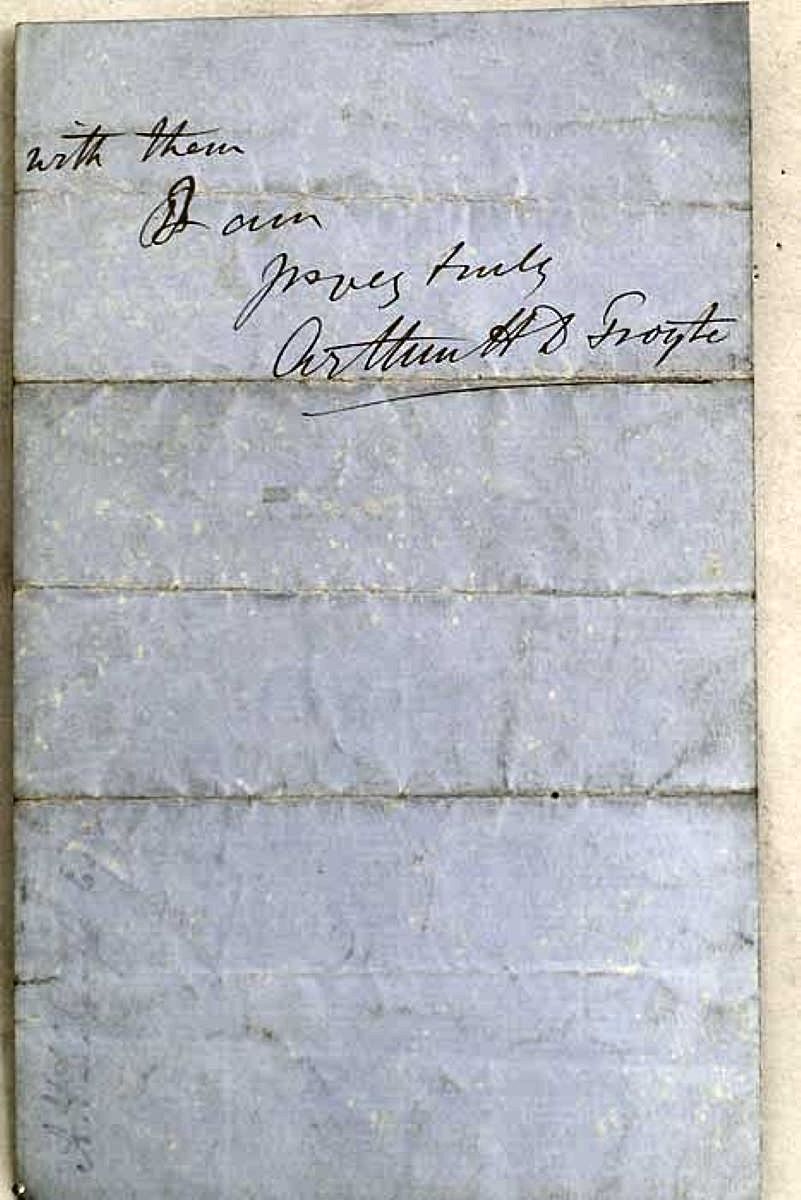 with them
I am
yrs very truly
Arthur H D Troyte